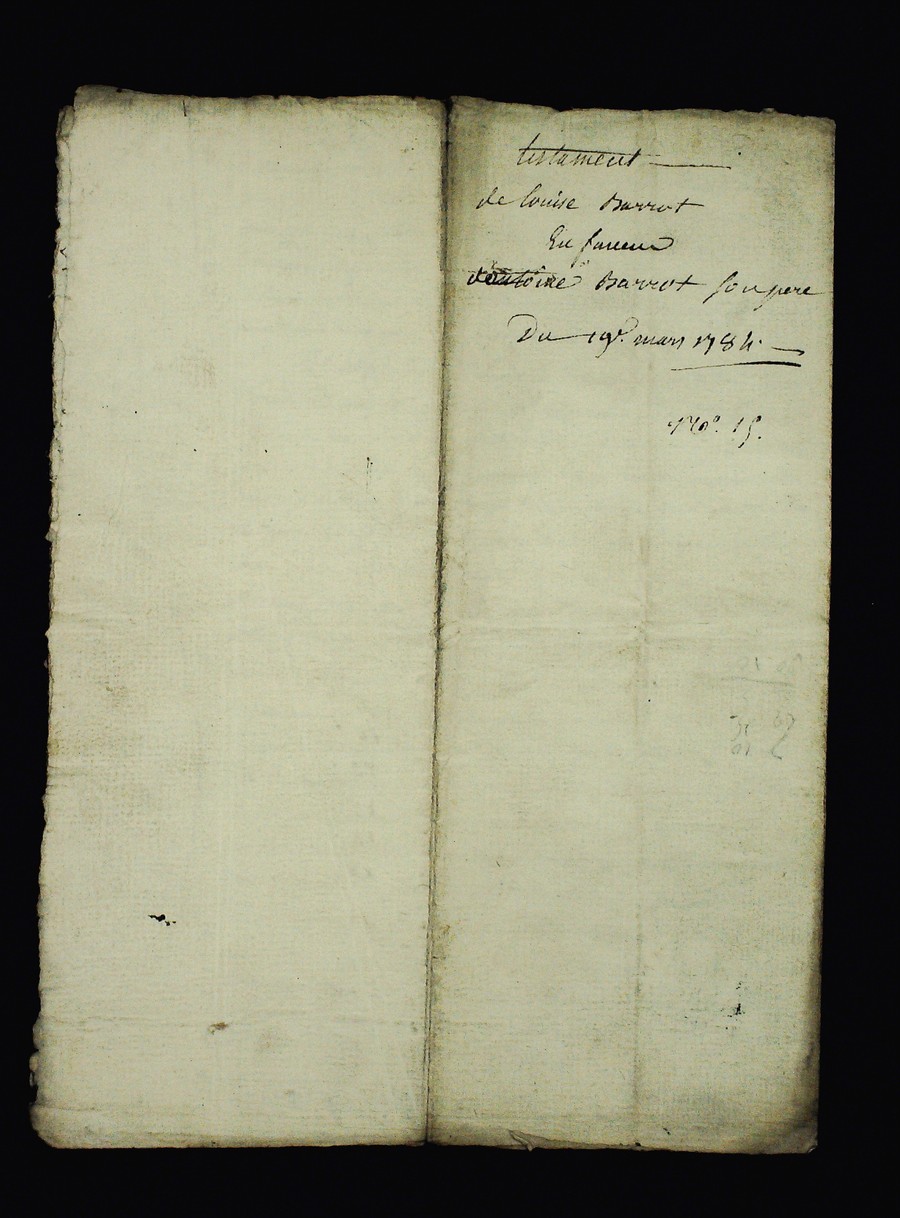 testament
de louise Barrot
En faveur
d'antoine Barrot son pere
Du 19e. mars 1784.
No. 15.